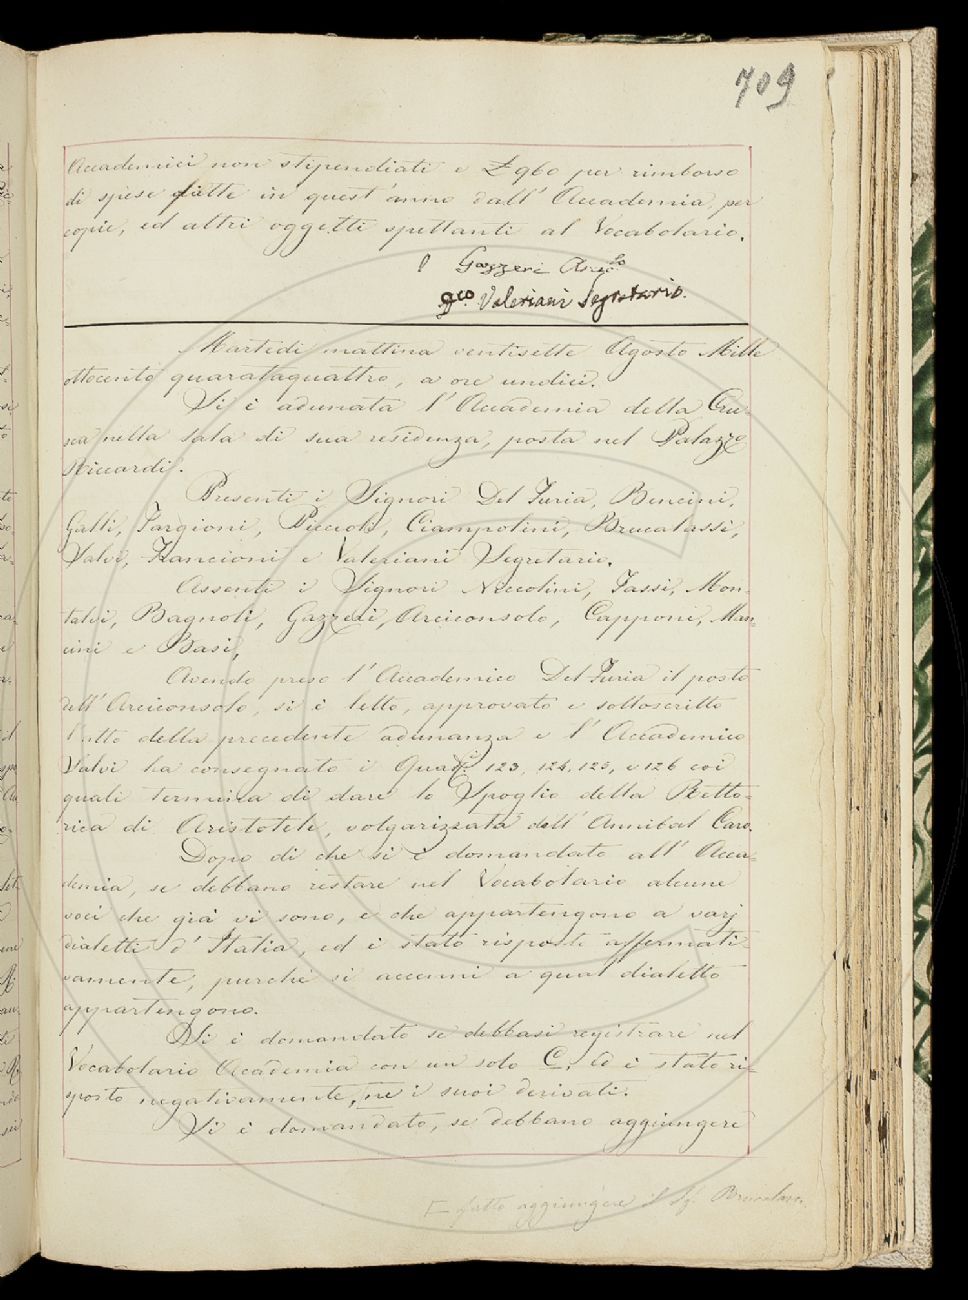 709
Accademici non stipendiati e £ 960 per rimborso
di spese fatte in quest'anno dall'Accademia per
copie, ed altri oggetti spettanti al Vocabolario.
Gazzeri Arcic.lo
Valeriani Segretario.
Martedì mattina ventisette Agosto Mille
ottocento quarataquattro, a ore undici.
Si è adunata l'Accademia della Cru-
sca nella sala di sua residenza, posta nel Palazzo
Riccardi.
Presenti i Signori Del Furia, Bencini,
Gatti, Targioni, Piccioli, Ciampolini, Brucalassi,
Salvi, Francioni e Valeriani Segretario.
Assenti i Signori Niccolini, Tassi, Mon-
talvi, Bagnoli, Gazzeri, Arciconsolo, Capponi, Man-
cini e Basi,
Avendo preso l'Accademico Del Furia il posto
dell'Arciconsolo, si è letto, approvato e sottoscritto
l'atto della precedente adunanza e l'Accademico
Salvi ha consegnato i Quad.i 123, 124, 125, e 126 coi
quali termina di dare lo Spoglio della Retto-
rica di Aristotele, volgarizzata dall'Annibal Caro.
Dopo di che si è domandato all'Acca-
demia, se debbano restare nel Vocabolario alcune
voci che già vi sono, e che appartengono a varj
dialetti d'Italia, ed è stato risposto affermati-
vamente, purchè si accenni a qual dialetto
appartengono.
Si è domandato se debbasi registrare nel
Vocabolario Accademia con un solo C, ed è stato ri-
sposto negativamente, ne i suoi derivati.
Si è domandato, se debbano aggiungere
fatto aggiungere il Sg. Brucalassi